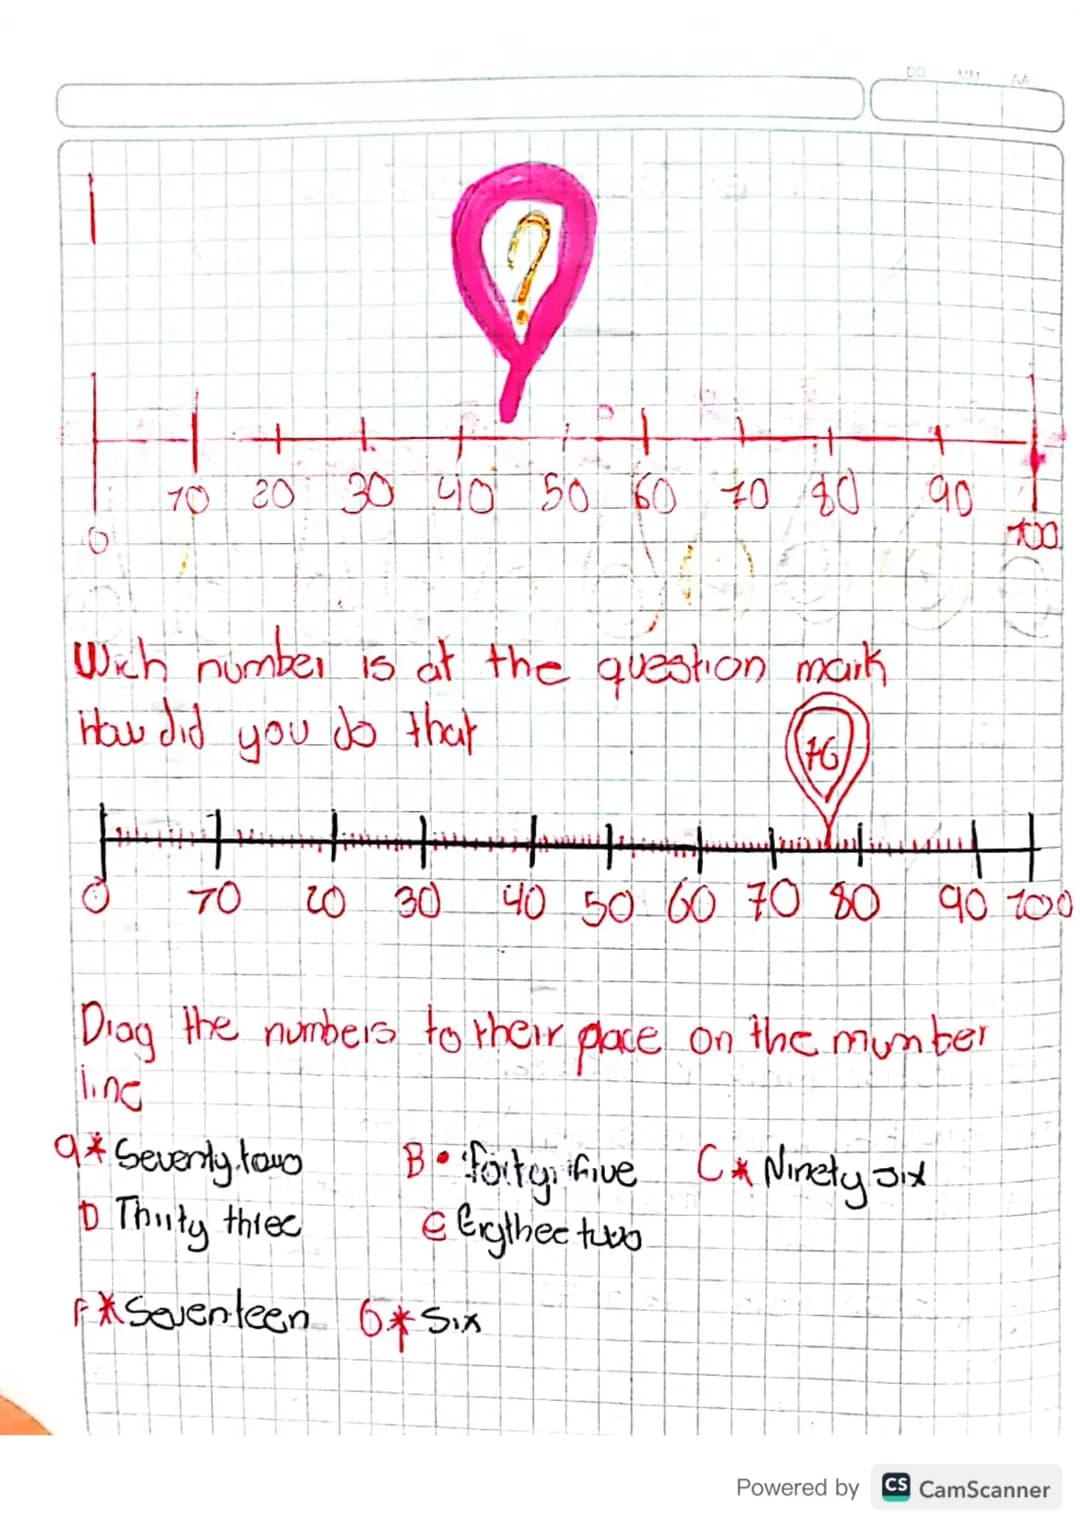 DD MM AA
?
0 10 20 30 40 50 60 70 80 90 100
Wich number is at the question mark
How did you do that
76
0 10 20 30 40 50 60 70 80 90 100
Drag the numbers to their place on the mumber
line
a* Seventy.towo B• forty five C* Ninety six
D Thirty three E Eigthee two
F* Seventeen G* Six
Powered by CS CamScanner